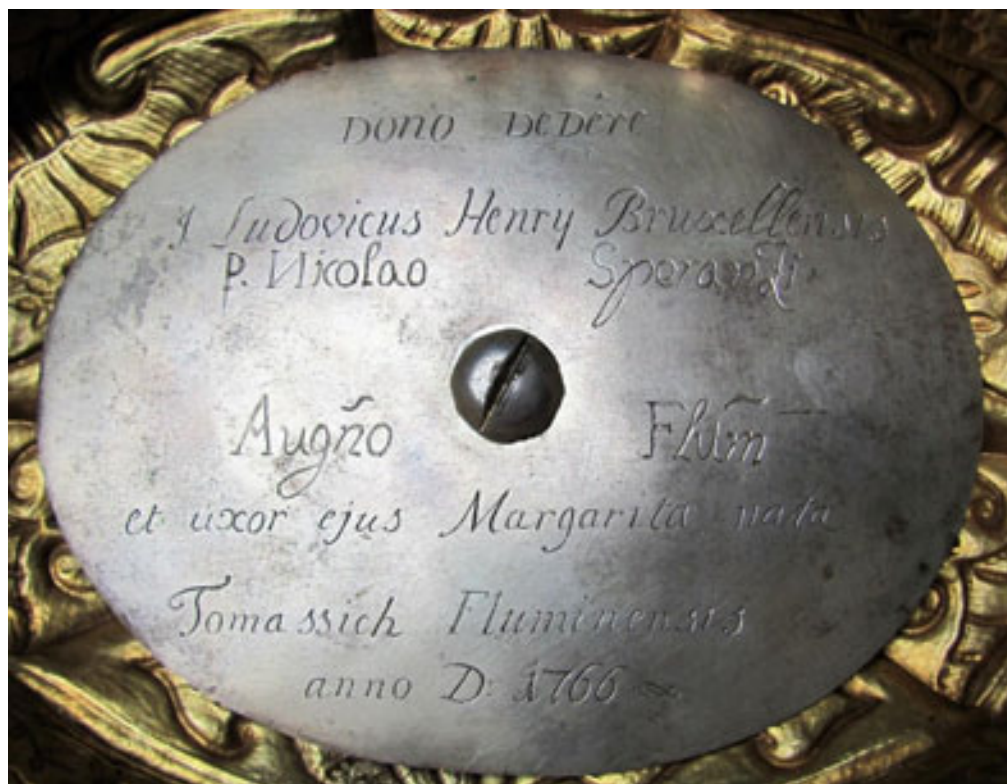 DONO DEDERE
J Ludovicus Henry Bruxellensis
P. Nicolao Sperandi
Augño Flum̃
et uxor ejus Margarita nata
Tomassich Fluminensis
anno D: 1766